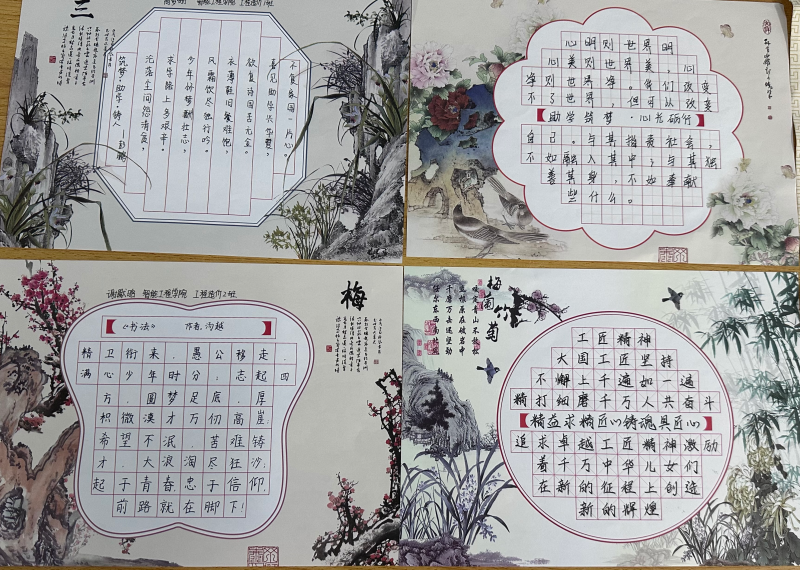 三
智能工程学院 工程造价2班
不负家国一片心。
喜见助学长华夏,
欲食诗国吾无金。
衣薄鞋旧餐难饱,
风霜饮尽独行吟。
少年怀梦酬壮志,
求学路上多艰辛。
沦落尘间怨清贫,
筑梦·助学·铸人
心明则世界明
心美则世界美,心
净则世界净。我们改变
不了世界,但可以改变
【助学筑梦·心志砺行】
自己。与其指责社会,
不如融入其中;与其独
善其身,不如奉献
些什么。
智能工程学院 工程造价2班
梅
【《书法》 作者:沟越】
精卫衔来.愚公移走.
满心少年时分:志起四
方.圆梦足底.厚
积微漠才万仞高崖,
希望不泯.苦难铸
才.大浪淘尽狂沙,
起于青春,忠于信仰,
前路就在脚下!
梅兰竹菊
咬定青山不放松
立根原在破岩中
千磨万击还坚劲
任尔东西南北风
工匠精神
大国工匠坚持
不懈上千遍如一遍
精打细磨千万人共奋斗
【精益求精匠心铸魂具匠心】
追求卓越工匠精神激励
着千万中华儿女们
在新的征程上创造
新的辉煌